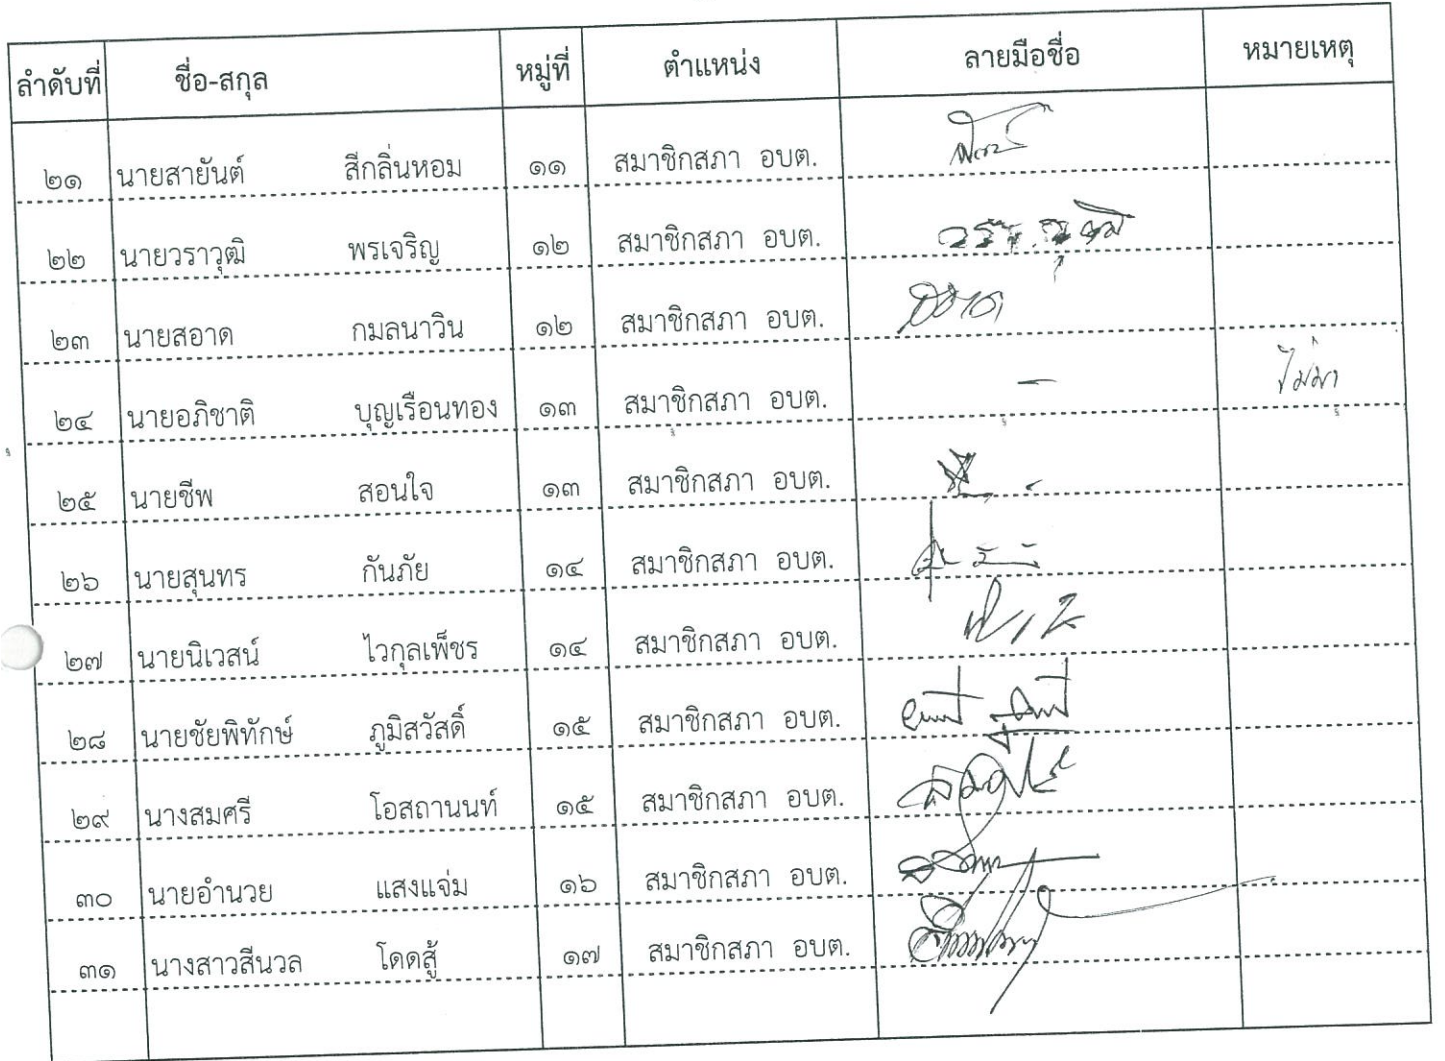 ลำดับที่ ชื่อ-สกุล หมู่ที่ ตำแหน่ง ลายมือชื่อ หมายเหตุ
๒๑ นายสายันต์ สีกลิ่นหอม ๑๑ สมาชิกสภา อบต.
๒๒ นายวราวุฒิ พรเจริญ ๑๒ สมาชิกสภา อบต.
๒๓ นายสอาด กมลนาวิน ๑๒ สมาชิกสภา อบต.
๒๔ นายอภิชาติ บุญเรือนทอง ๑๓ สมาชิกสภา อบต. - ไม่มา
๒๕ นายชีพ สอนใจ ๑๓ สมาชิกสภา อบต.
๒๖ นายสุนทร กันภัย ๑๔ สมาชิกสภา อบต.
๒๗ นายนิเวสน์ ไวกุลเพ็ชร ๑๔ สมาชิกสภา อบต.
๒๘ นายชัยพิทักษ์ ภูมิสวัสดิ์ ๑๕ สมาชิกสภา อบต.
๒๙ นางสมศรี โอสถานนท์ ๑๕ สมาชิกสภา อบต.
๓๐ นายอำนวย แสงแจ่ม ๑๖ สมาชิกสภา อบต.
๓๑ นางสาวสีนวล โดดสู้ ๑๗ สมาชิกสภา อบต.